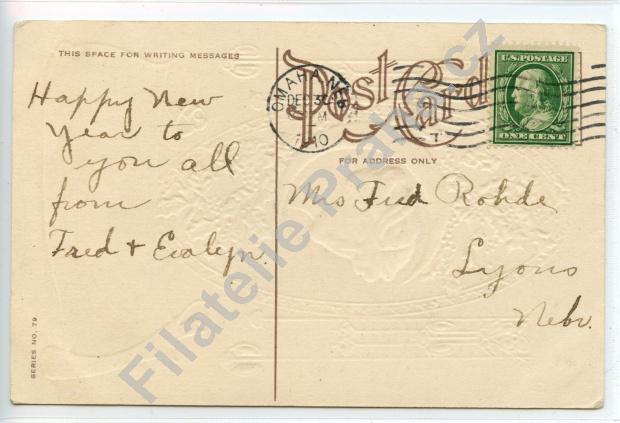 THIS SPACE FOR WRITING MESSAGES
Post Card
OMAHA, NEB.
DEC 3
M
10
7
U.S. POSTAGE
ONE CENT
FOR ADDRESS ONLY
Happy New
Year to
you all
from
Fred & Evalyn.
Mrs Fred Rohde
Lyons
Nebr.
SERIES NO. 79
Filatelie Praha.cz